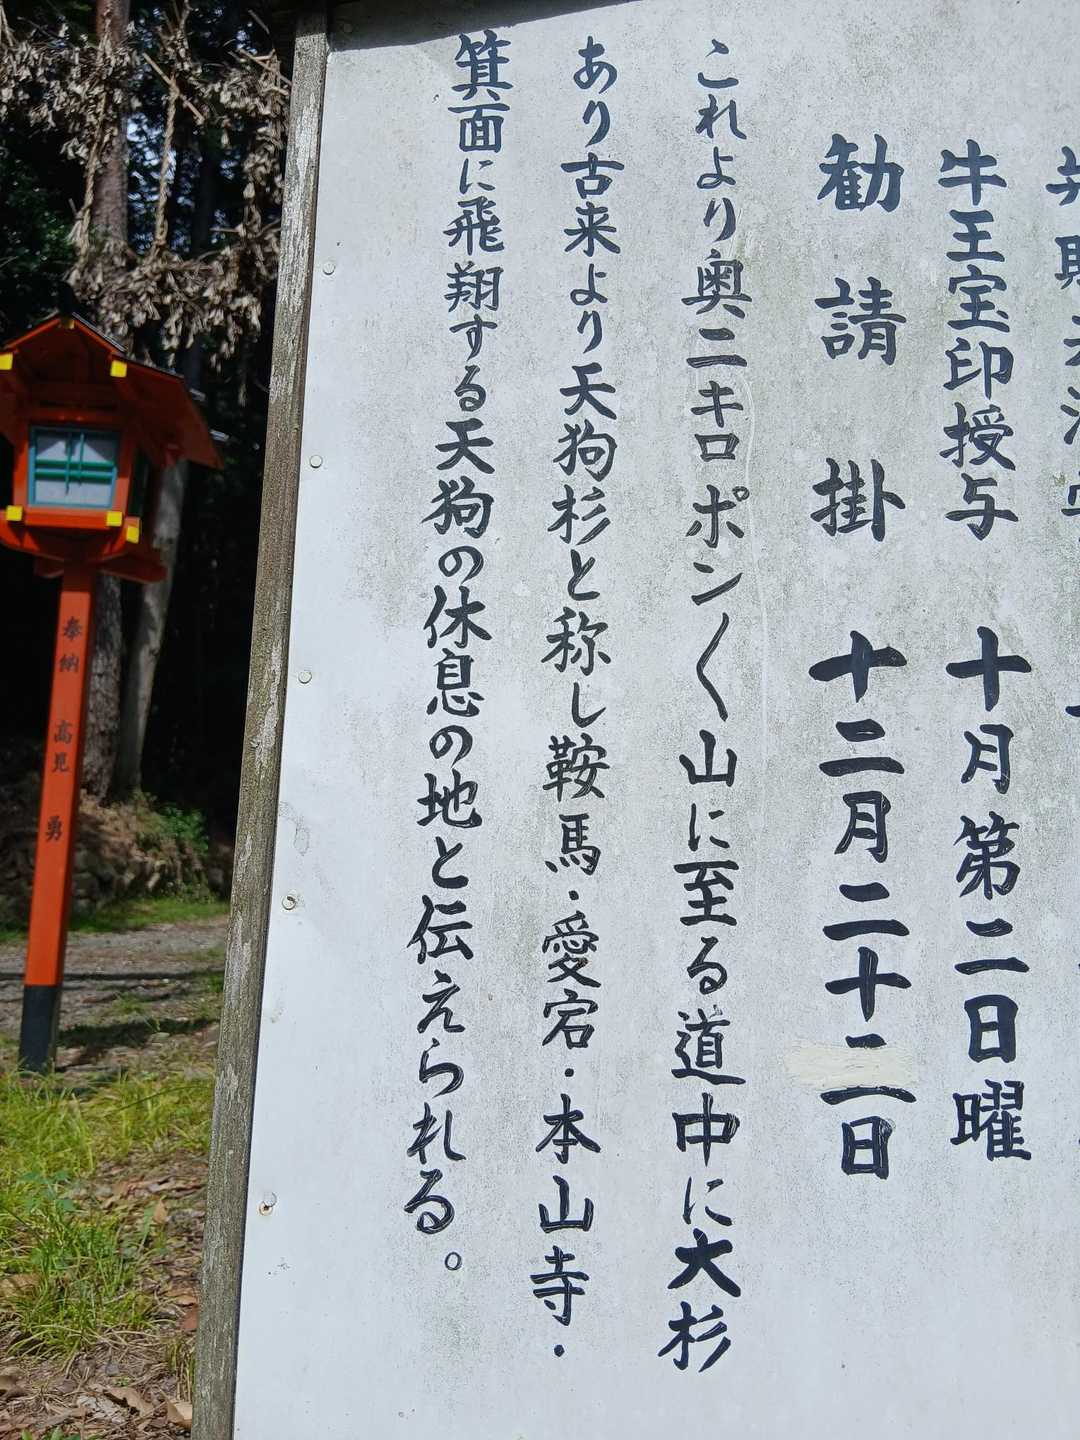 牛王宝印授与 十月第二日曜
勧請掛 十二月二十二日
これより奥二キロポンく山に至る道中に大杉
あり古来より天狗杉と称し鞍馬・愛宕・本山寺・
箕面に飛翔する天狗の休息の地と伝えられる。
奉納 高見 勇